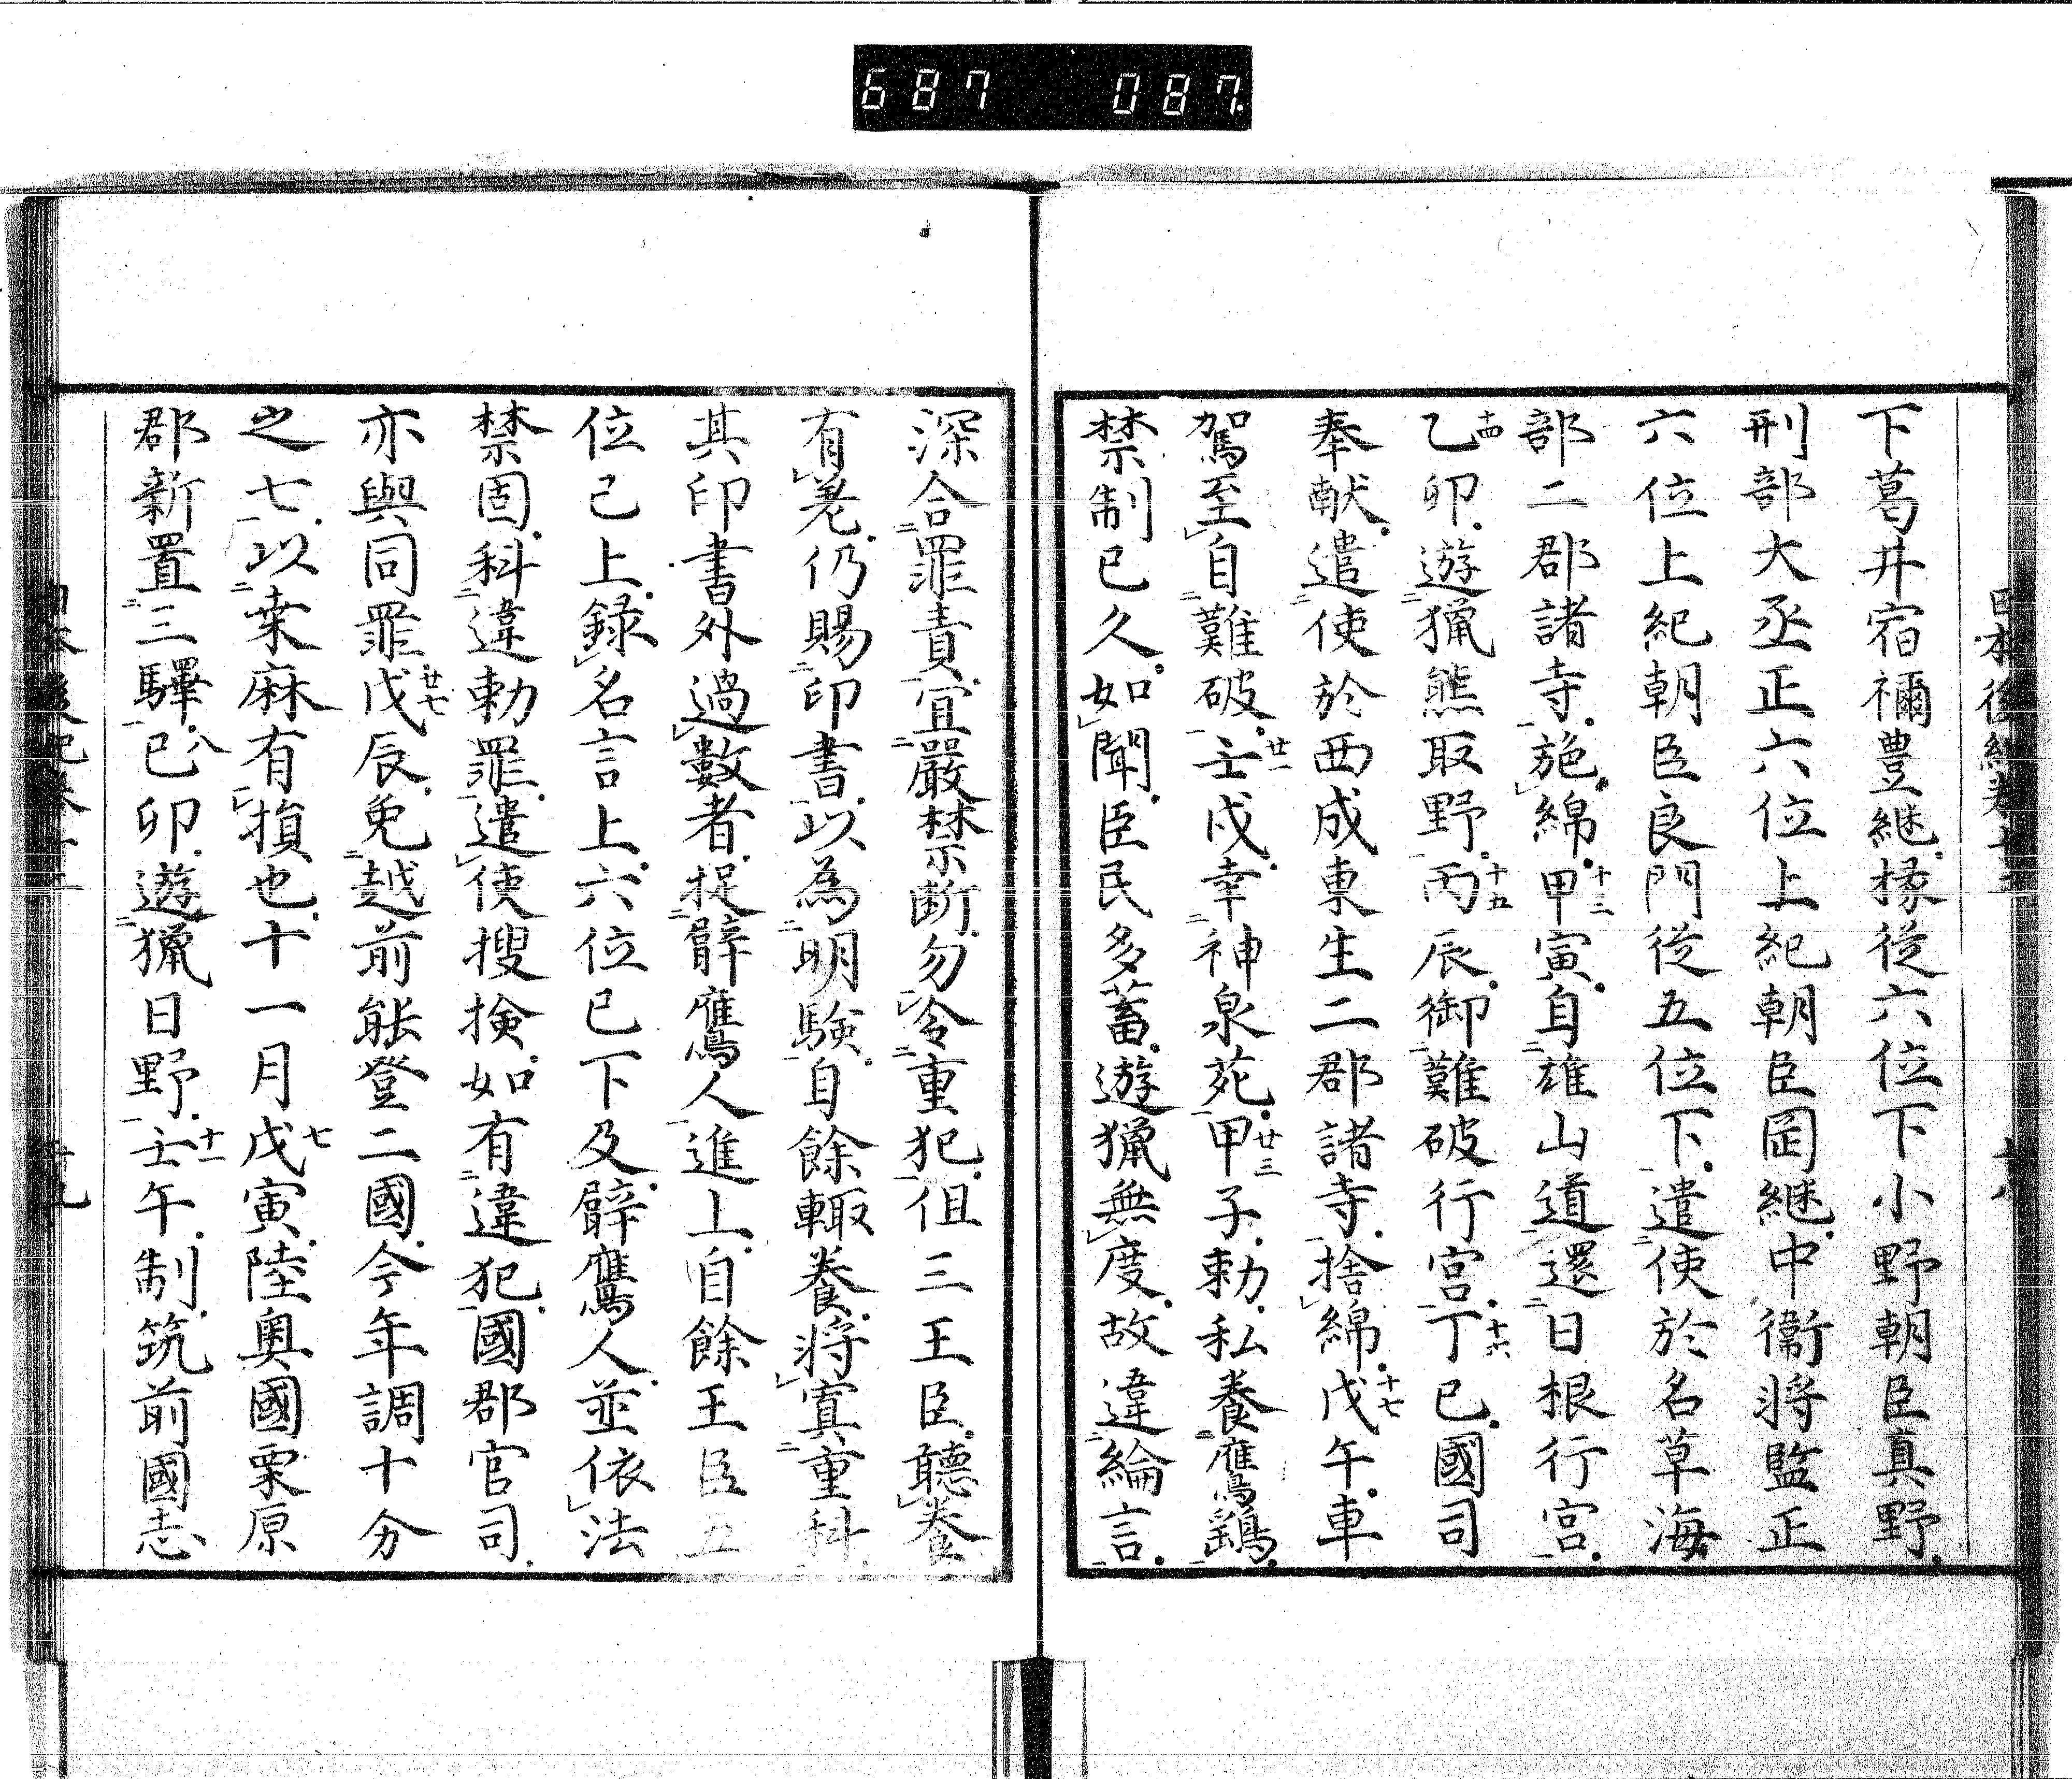 687 087
日本後紀卷十二 十八
下葛井宿禰豊継掾従六位下小野朝臣真野
刑部大丞正六位上紀朝臣岡継中衛将監正
六位上紀朝臣良門従五位下遣使於名草海
部二郡諸寺施綿甲寅自雄山道還日根行宮
乙卯遊猟熊取野丙辰御難破行宮丁巳國司
奉献遣使於西成東生二郡諸寺捨綿戊午車
駕至自難破壬戌幸神泉苑甲子勅私養鷹鷂
禁制已久如聞臣民多蓄遊猟無度故違綸言
深合罪責宜嚴禁断勿令重犯但三王臣聴養
有差仍賜印書以為明験自餘輙養将寘重科
其印書外過數者捉臂鷹人進上自餘王臣五
位已上録名言上六位已下及臂鷹人並依法
禁固科違勅罪遣使搜検如有違犯國郡官司
亦與同罪戊辰免越前能登二國今年調十分
之七以桒麻有損也十一月戊寅陸奥國栗原
郡新置三驛已卯遊猟日野壬午制筑前國志
日本後紀卷十二 十九